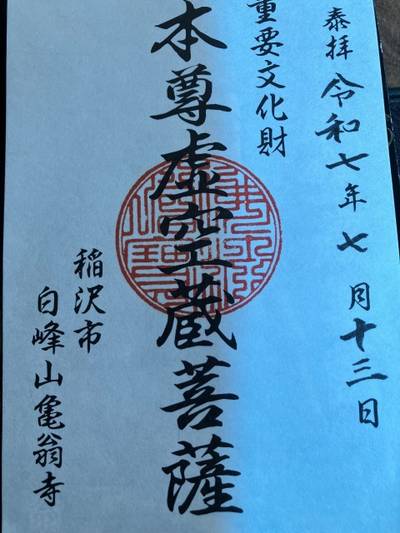 奉拝 令和七年七月十三日
重要文化財
本尊虚空蔵菩薩
稲沢市
白峰山亀翁寺